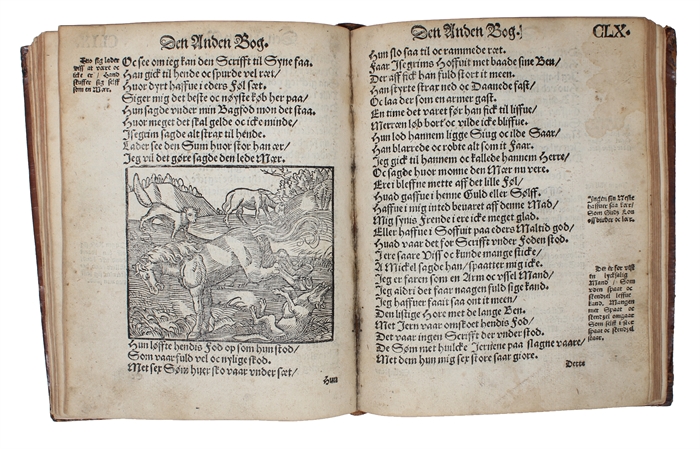 Den Anden Bog.
Tro sig lader
viss at være oc
icke er / Hand
stuffer sig selff
som en Mær.
Oc see om ieg kan den Scrifft til Syne faa.
Han gick til hende oc spurde vel ræt/
Huor dyrt haffue i eders Føl sæt.
Siger mig det beste oc nøyste køb her paa/
Hun sagde vnder min Bagfod mon det staa.
Huor meget det skal gelde oc icke minde/
Jsegrim sagde alt strax til hende.
Lader see den Sum huor stor han ær/
Jeg vil det gøre sagde den lede Mær.
Hun løffte hendis Fod op som hun stod/
Som vaar fuld vel oc nylige skod.
Met sex Søm huer sko vaar vnder sæt/
Hun
Den Anden Bog.
CLX.
Hun slo saa til oc rammede ræt.
Faar Jsegrims Hoffuit met baade sine Ben/
Der aff fick han fuld stort it meen.
Han styrte strax ned oc Daanede fast/
Oc laa der som en armer gast.
En time det varet før han fick til liffue/
Merren løb bort oc vilde icke bliffue.
Hun lod hannem ligge Siug oc ilde Saar/
Han blarrede oc robte alt som it Faar.
Jeg gick til hannem oc kallede hannem Herre/
Oc sagde huor monne den Mær nu vere.
Erei bleffne mette aff det lille Føl/
Huad gaffue i henne Guld eller Sølff.
Haffue i mig inted beuaret aff denne Mad/
Mig synis Frende i ere icke meget glad.
Eller haffue i Soffuit paa eders Maltid god/
Huad vaar det for Scrifft vnder Foden stod.
Jere saare Viss oc kunde mange sticke/
A Mickel sagde han / spaatter mig icke.
Jeg er faren som en Arm oc vssel Mand/
Jeg aldri det faar naagen fuld sige kand.
Jeg haffuer faait saa ont it meen/
Den listige Hore met de lange Ben.
Met Jern vaar omskoet hendis Fod/
Det vaar ingen Scrifft der vnder stod.
De Søm met huilcke Jernene paa slagne vaare/
Met dem hun mig sex store saar giore.
Jngen sin Neste
haffuer saa kær/
Som Guds Lou
oss biuder oc lær.
Det er for vist
en lycksalig
Mand / Som
vden spaat oc
skendzel leffue
kand. Mangen
met Spaat oc
skendzel omgaar
Som selff i stor
spaat oc skendzel
staar.
Dette